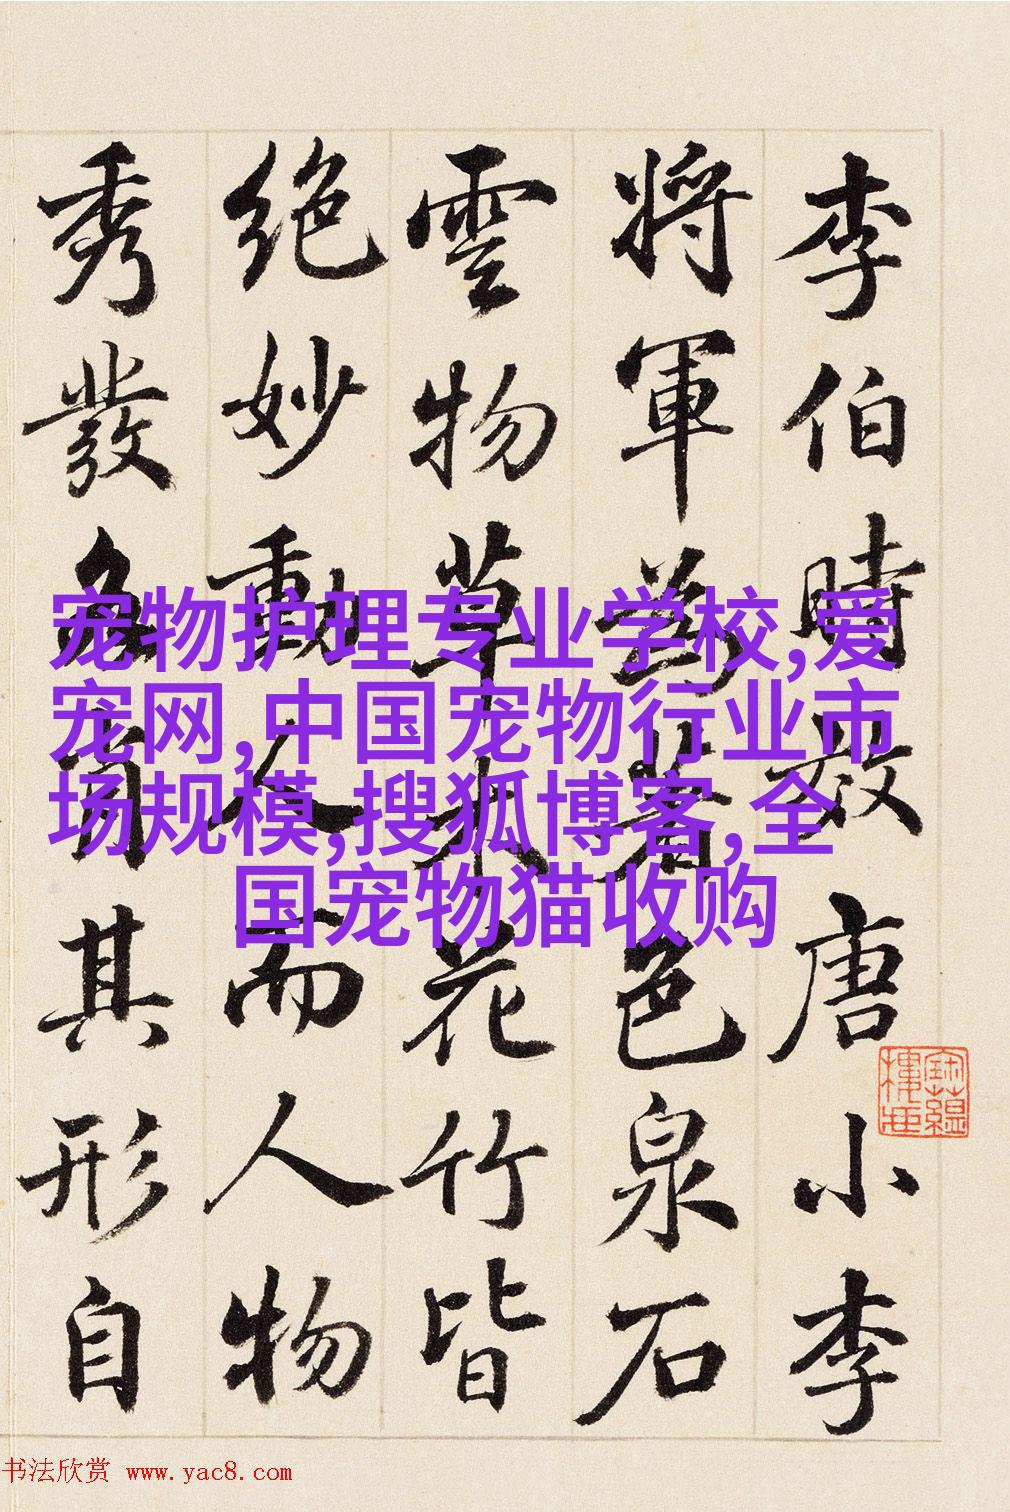 李伯時效唐小李
將軍為著色泉石
雲物草木花竹皆
絶妙動人而人物
秀發各肖其形自
宠物护理专业学校,爱
宠网,中国宠物行业市
场规模,搜狐博客,全
国宠物猫收购
书法欣赏 www.yac8.com